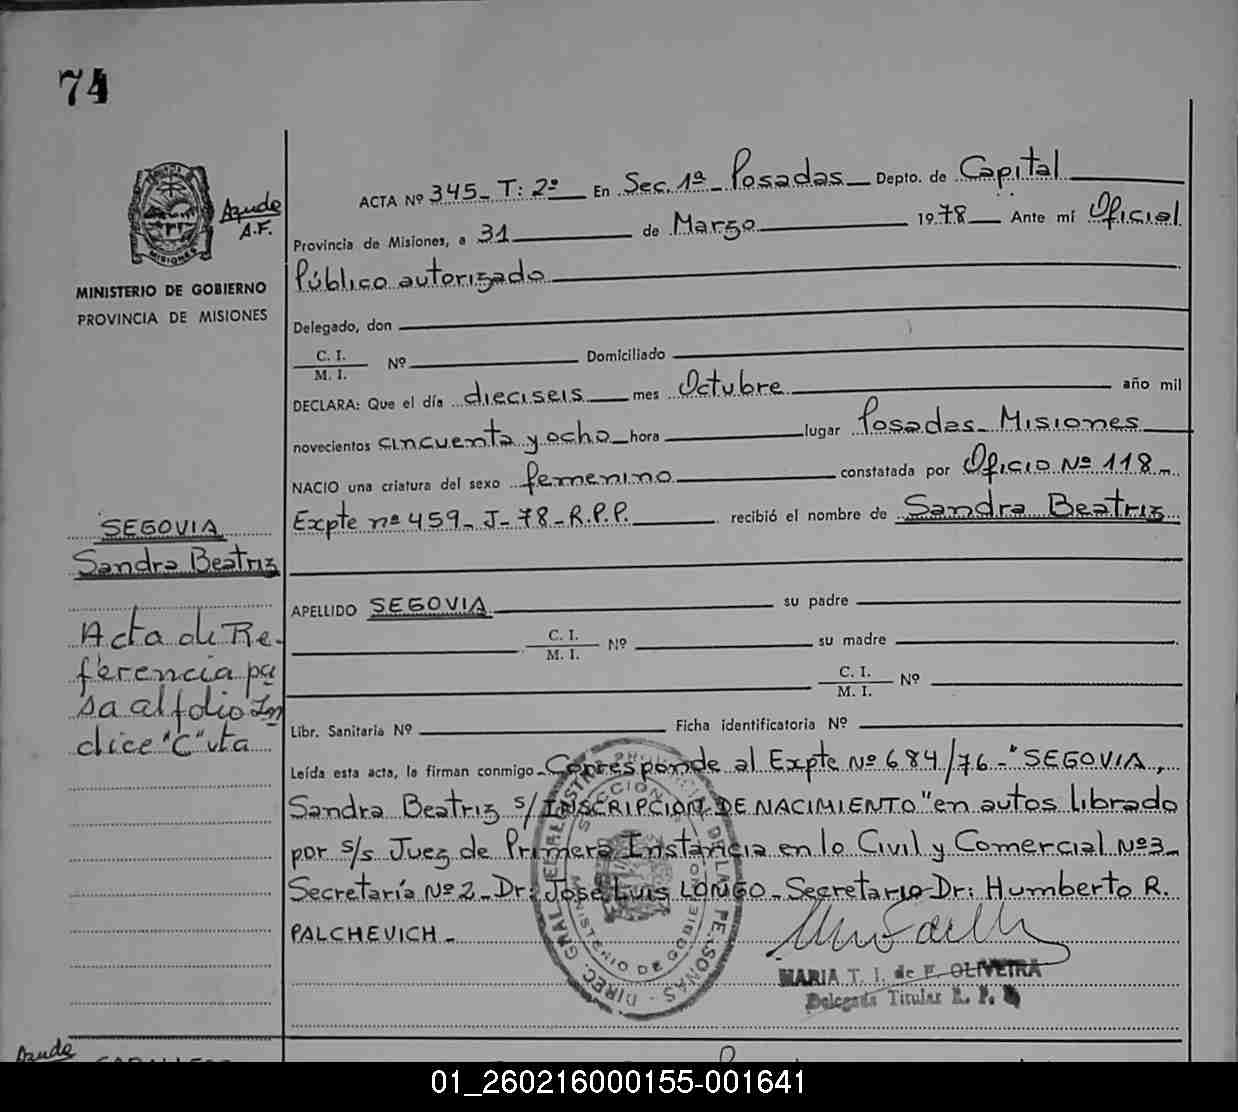 74
Ayude
A.F.
MINISTERIO DE GOBIERNO
PROVINCIA DE MISIONES
ACTA Nº 345_ T: 2º En Sec. 1ª_ Posadas_ Depto. de Capital
Provincia de Misiones, a 31 de Marzo 1978 Ante mí Oficial
Público autorizado
Delegado, don
C. I.
M. I. Nº Domiciliado
DECLARA: Que el día dieciseis mes Octubre año mil
novecientos cincuenta y ocho hora lugar Posadas_ Misiones
NACIO una criatura del sexo femenino constatada por Oficio Nº 118_
Expte nº 459_ J_ 78_ R.P.P. recibió el nombre de Sandra Beatriz
APELLIDO SEGOVIA su padre
C. I.
M. I. Nº su madre
C. I.
M. I. Nº
Libr. Sanitaria Nº Ficha identificatoria Nº
Leída esta acta, la firman conmigo_ Corresponde al Expte Nº 684/76_ "SEGOVIA,
Sandra Beatriz s/INSCRIPCION DE NACIMIENTO" en autos librado
por s/s Juez de Primera Instancia en lo Civil y Comercial Nº3_
Secretaría Nº2_ Dr: José Luis LONGO_ Secretario Dr: Humberto R.
PALCHEVICH_
SEGOVIA
Sandra Beatriz
Acta de Re-
ferencia pa
sa al folio In
dice "C" vta
MARIA T. I. de F. OLIVEIRA
Delegada Titular R. P.
DIREC. GRAL. DEL REGISTRO PROVINCIAL DE LAS PERSONAS
SECCION
MINISTERIO DE GOBIERNO
MISIONES
01_260216000155-001641